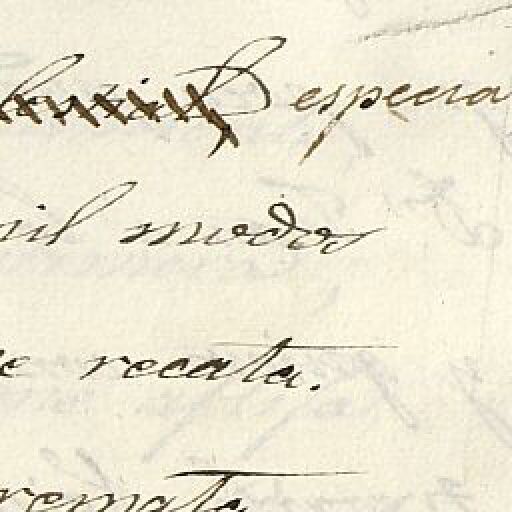 especia
mil modos
e recata.
remata